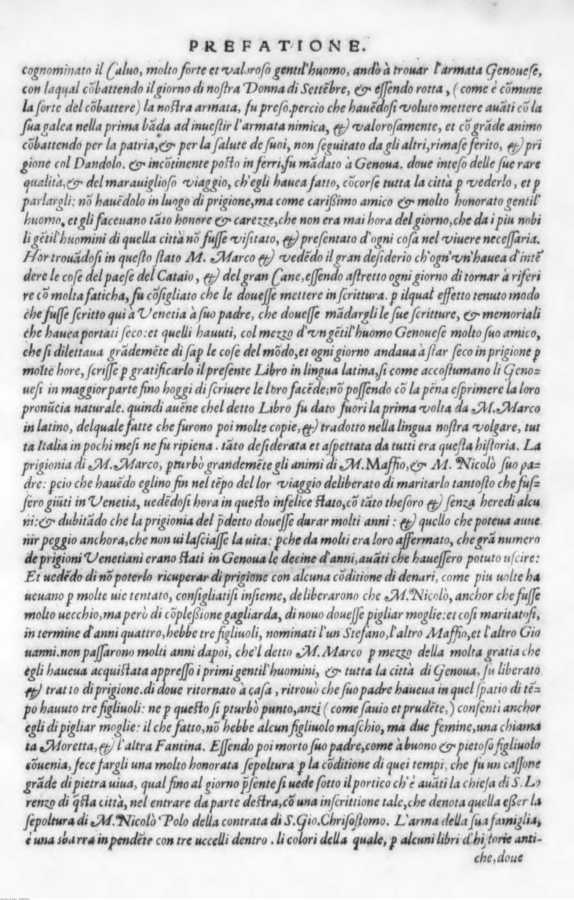 PREFATIONE.
cognominato il Caluo, molto forte et valoroso gentil'huomo, andò à trouar l'armata Genouese,
con laqual cõbattendo il giorno di nostra Donna di Settẽbre, & essendo rotta, (come è cõmune
la sorte del cõbattere) la nostra armata, fu preso. percio che hauẽdosi voluto mettere auãti cõ la
sua galea nella prima bãda ad inuestir l'armata nimica, & valorosamente, et cõ grãde animo
cõbattendo per la patria, & per la salute de suoi, non seguitato da gli altri, rimase ferito, & pri
gione col Dandolo. & incõtinente posto in ferri, fu mãdato à Genoua. doue inteso delle sue rare
qualità, & del marauiglioso viaggio, ch'egli hauea fatto, cõcorse tutta la città ꝑ vederlo, et ꝑ
parlargli: nõ hauẽdolo in luogo di prigione, ma come carißimo amico & molto honorato gentil'
huomo, et gli faceuano tãto honore & carezze, che non era mai hora del giorno, che da i piu nobi
li gẽtil'huomini di quella città nõ fusse visitato, & presentato d'ogni cosa nel viuere necessaria.
Hor trouãdosi in questo stato M. Marco & vedẽdo il gran desiderio ch'ogn'vn'hauea d'intẽ
dere le cose del paese del Cataio, & del gran Cane, essendo astretto ogni giorno di tornar à riferi
re cõ molta faticha, fu cõsigliato che le douesse mettere in scrittura. ꝑ ilqual effetto tenuto modo
che fusse scritto qui à Venetia à suo padre, che douesse mãdargli le sue scritture, & memoriali
che hauea portati seco: et quelli hauuti, col mezzo d'vn gẽtil'huomo Genouese molto suo amico,
che si dilettaua grãdemẽte di saꝑ le cose del mõdo, et ogni giorno andaua à star seco in prigione ꝑ
molte hore, scrisse ꝑ gratificarlo il presente Libro in lingua latina, si come accostumano li Geno-
uesi in maggior parte fino hoggi di scriuere le loro facẽde, nõ possendo cõ la pẽna esprimere la loro
pronũcia naturale. quindi auẽne chel detto Libro fu dato fuori la prima volta da M. Marco
in latino, delquale fatte che furono poi molte copie, & tradotto nella lingua nostra volgare, tut
ta Italia in pochi mesi ne fu ripiena. tãto desiderata et aspettata da tutti era questa historia. La
prigionia di M. Marco, ꝑturbò grandemẽte gli animi di M. Maffio, & M. Nicolò suo pa-
dre: ꝑcio che hauẽdo eglino fin nel tẽpo del lor viaggio deliberato di maritarlo tantosto che fus-
sero giũti in Venetia, uedẽdosi hora in questo infelice stato, cõ tãto thesoro & senza heredi alcu
ni: & dubitãdo che la prigionia del p̃detto douesse durar molti anni: & quello che poteua auue
nir peggio anchora, che non ui lasciasse la uita: ꝑche da molti era loro affermato, che grã numero
de prigioni Venetiani erano stati in Genoua le decine d'anni, auãti che hauessero potuto uscire:
Et uedẽdo di nõ poterlo ricuperar di prigione con alcuna cõditione di denari, come piu uolte ha
ueuano ꝑ molte uie tentato, consigliatisi insieme, deliberarono che M. Nicolò, anchor che fusse
molto uecchio, ma però di cõplessione gagliarda, di nouo douesse pigliar moglie: et cosi maritatosi,
in termine d'anni quattro, hebbe tre figliuoli, nominati l'un Stefano, l'altro Maffio, et l'altro Gio
uanni. non passarono molti anni dapoi, che'l detto M. Marco ꝑ mezzo della molta gratia che
egli haueua acquistata appresso i primi gentil'huomini, & tutta la città di Genoua, fu liberato
& tratto di prigione. di doue ritornato à casa, ritrouò che suo padre haueua in quel spatio di tẽ-
po hauuto tre figliuoli: ne ꝑ questo si ꝑturbò punto, anzi (come sauio et prudẽte,) consenti anchor
egli di pigliar moglie: il che fatto, nõ hebbe alcun figliuolo maschio, ma due femine, una chiama
ta Moretta, & l'altra Fantina. Essendo poi morto suo padre, come à buono & pietoso figliuolo
cõuenia, fece fargli una molto honorata sepoltura ꝑ la cõditione di quei tempi, che fu un cassone
grãde di pietra uiua, qual fino al giorno p̃sente si uede sotto il portico ch'è auãti la chiesa di S. Lo
renzo di q̃sta città, nel entrare da parte destra, cõ una inscrittione tale, che denota quella eßer la
sepoltura di M. Nicolò Polo della contrata di S. Gio. Chrisostomo. L'arma della sua famiglia,
è una sbarra in pendẽte con tre uccelli dentro. li colori della quale, ꝑ alcuni libri d'historie anti-
che, doue